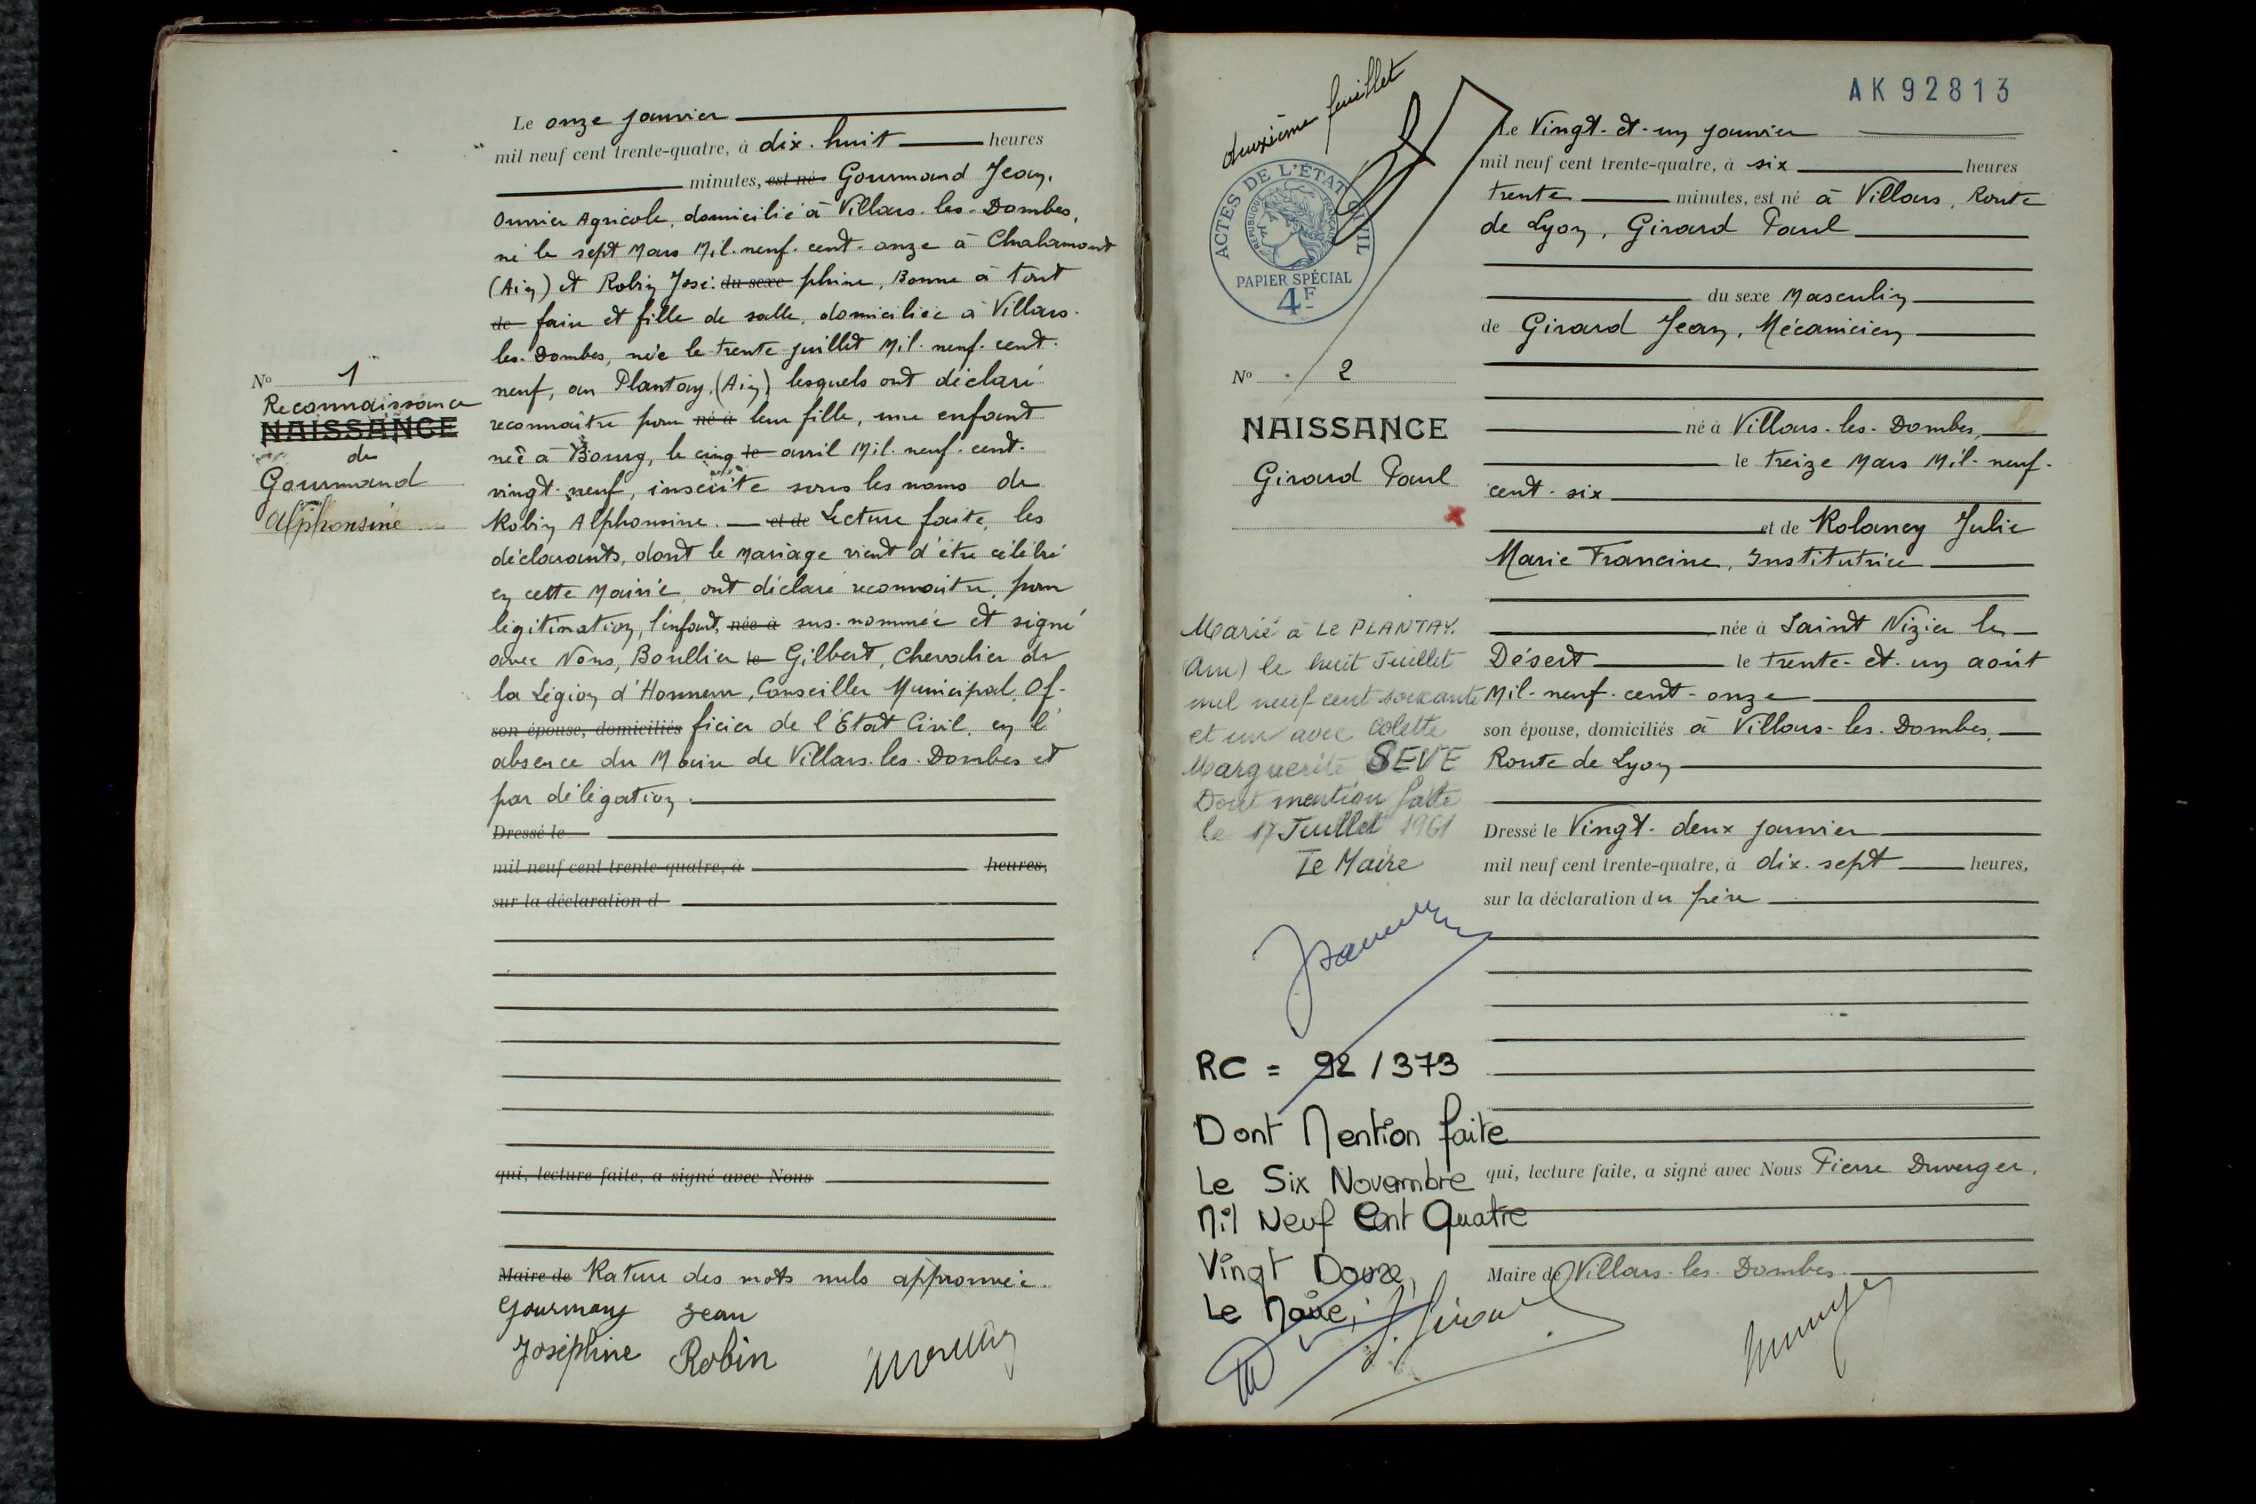 Le onze janvier
mil neuf cent trente-quatre, à dix-huit heures
minutes, est né Gourmand Jean,
ouvrier Agricole, domicilié à Villars-les-Dombes,
né le sept Mars Mil-neuf-cent-onze à Chalamont
(Ain) et Robin José- du sexe phine, Bonne à tout
de faire et fille de salle, domiciliée à Villars-
les-Dombes, née le trente juillet Mil-neuf-cent-
neuf, au Plantay (Ain) lesquels ont déclaré
reconnaître pour né à leur fille, une enfant
née à Bourg, le cinq le avril Mil-neuf-cent-
vingt-neuf, inscrite sous les noms de
Robin Alphonsine. et de Lecture faite, les
déclarants, dont le mariage vient d'être célébré
en cette Mairie, ont déclaré reconnaître, pour
légitimation, l'enfant, née à sus-nommée et signé
avec Nous, Boullier le Gilbert, Chevalier de
la Légion d'Honneur, Conseiller Municipal, Of-
son épouse, domiciliés ficier de l'Etat Civil, en l'
absence du Maire de Villars-les-Dombes et
par délégation.
Dressé le
mil neuf cent trente-quatre, à heures,
sur la déclaration d
qui, lecture faite, a signé avec Nous
Maire de Rature des mots nuls approuvée.
Gourmand Jean
Joséphine Robin
No 1
Reconnaissance
NAISSANCE
de
Gourmand
Alphonsine
deuxième feuillet
ACTES DE L'ÉTAT CIVIL
RÉPUBLIQUE FRANÇAISE
PAPIER SPÉCIAL
4F
No 2
NAISSANCE
Girard Paul
Marié à LE PLANTAY.
(Ain) le huit Juillet
mil neuf cent soixante
et un avec Colette
Marguerite SEVE
Dont mention faite
le 17 Juillet 1961
Le Maire
RC = 92/373
Dont Mention faite
Le Six Novembre
Mil Neuf Cent Quatre
Vingt Douze,
Le Maire,
AK92813
Le Vingt-et-un janvier
mil neuf cent trente-quatre, à six heures
trente minutes, est né à Villars, Route
de Lyon, Girard Paul
du sexe Masculin
de Girard Jean, Mécanicien
né à Villars-les-Dombes,
le treize Mars Mil-neuf-
cent-six
et de Rolancy Julie
Marie Francine, Institutrice
née à Saint Nizier le
Désert le trente-et-un août
Mil-neuf-cent-onze
son épouse, domiciliés à Villars-les-Dombes,
Route de Lyon
Dressé le Vingt-deux janvier
mil neuf cent trente-quatre, à dix-sept heures,
sur la déclaration du père
qui, lecture faite, a signé avec Nous Pierre Duverger,
Maire de Villars-les-Dombes.
J. Girard